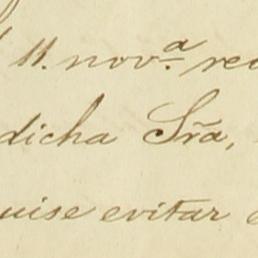 11. nov.ª re
dicha Sra,
uise evitar